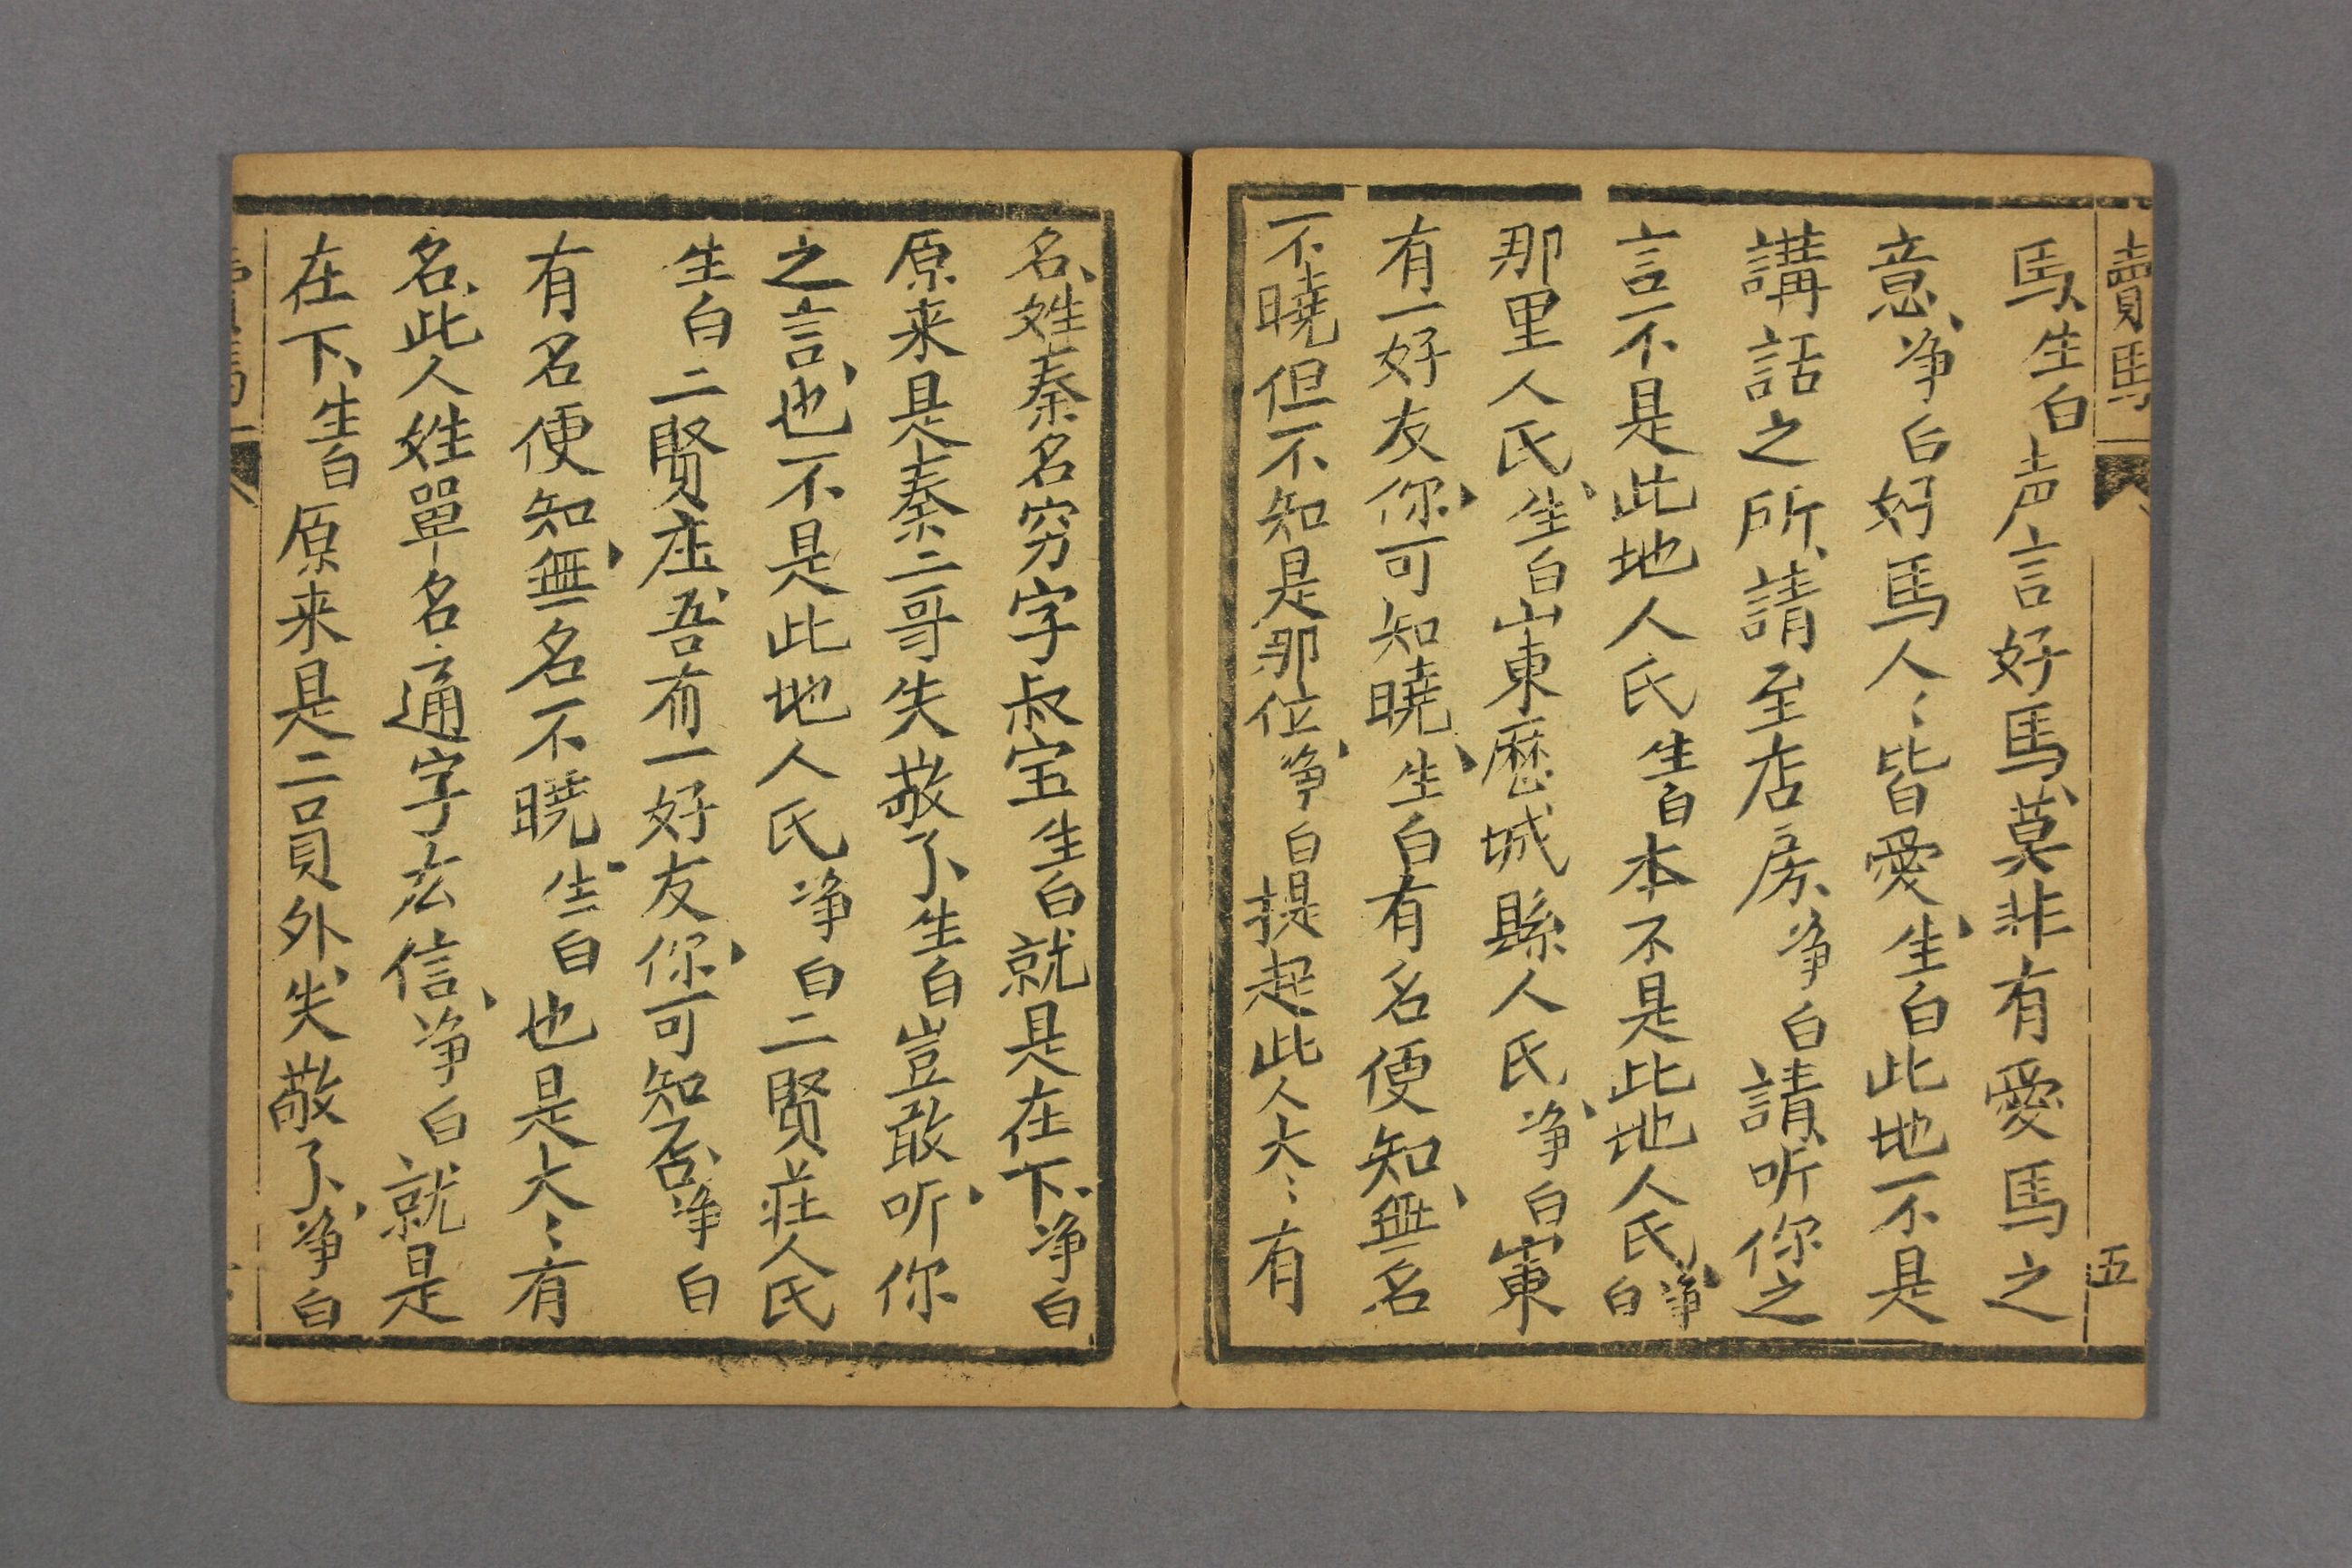 賣馬
五
馬生白声言好馬莫非有愛馬之
意净白好馬人〻皆愛生白此地不是
講話之所請至店房净白請听你之
言不是此地人氏生白本不是此地人氏净白
那里人氏生白山東歷城縣人氏净白山東
有一好友你可知曉生白有名便知無名
不曉但不知是那位净白提起此人大〻有
名姓秦名穷字叔宝生白就是在下净白
原来是秦二哥失敬了生白豈敢听你
之言也不是此地人氏净白二賢莊人氏
生白二賢庄吾有一好友你可知否净白
有名便知無名不曉生白也是大〻有
名此人姓單名通字厷信净白就是
在下生白原来是二員外失敬了净白